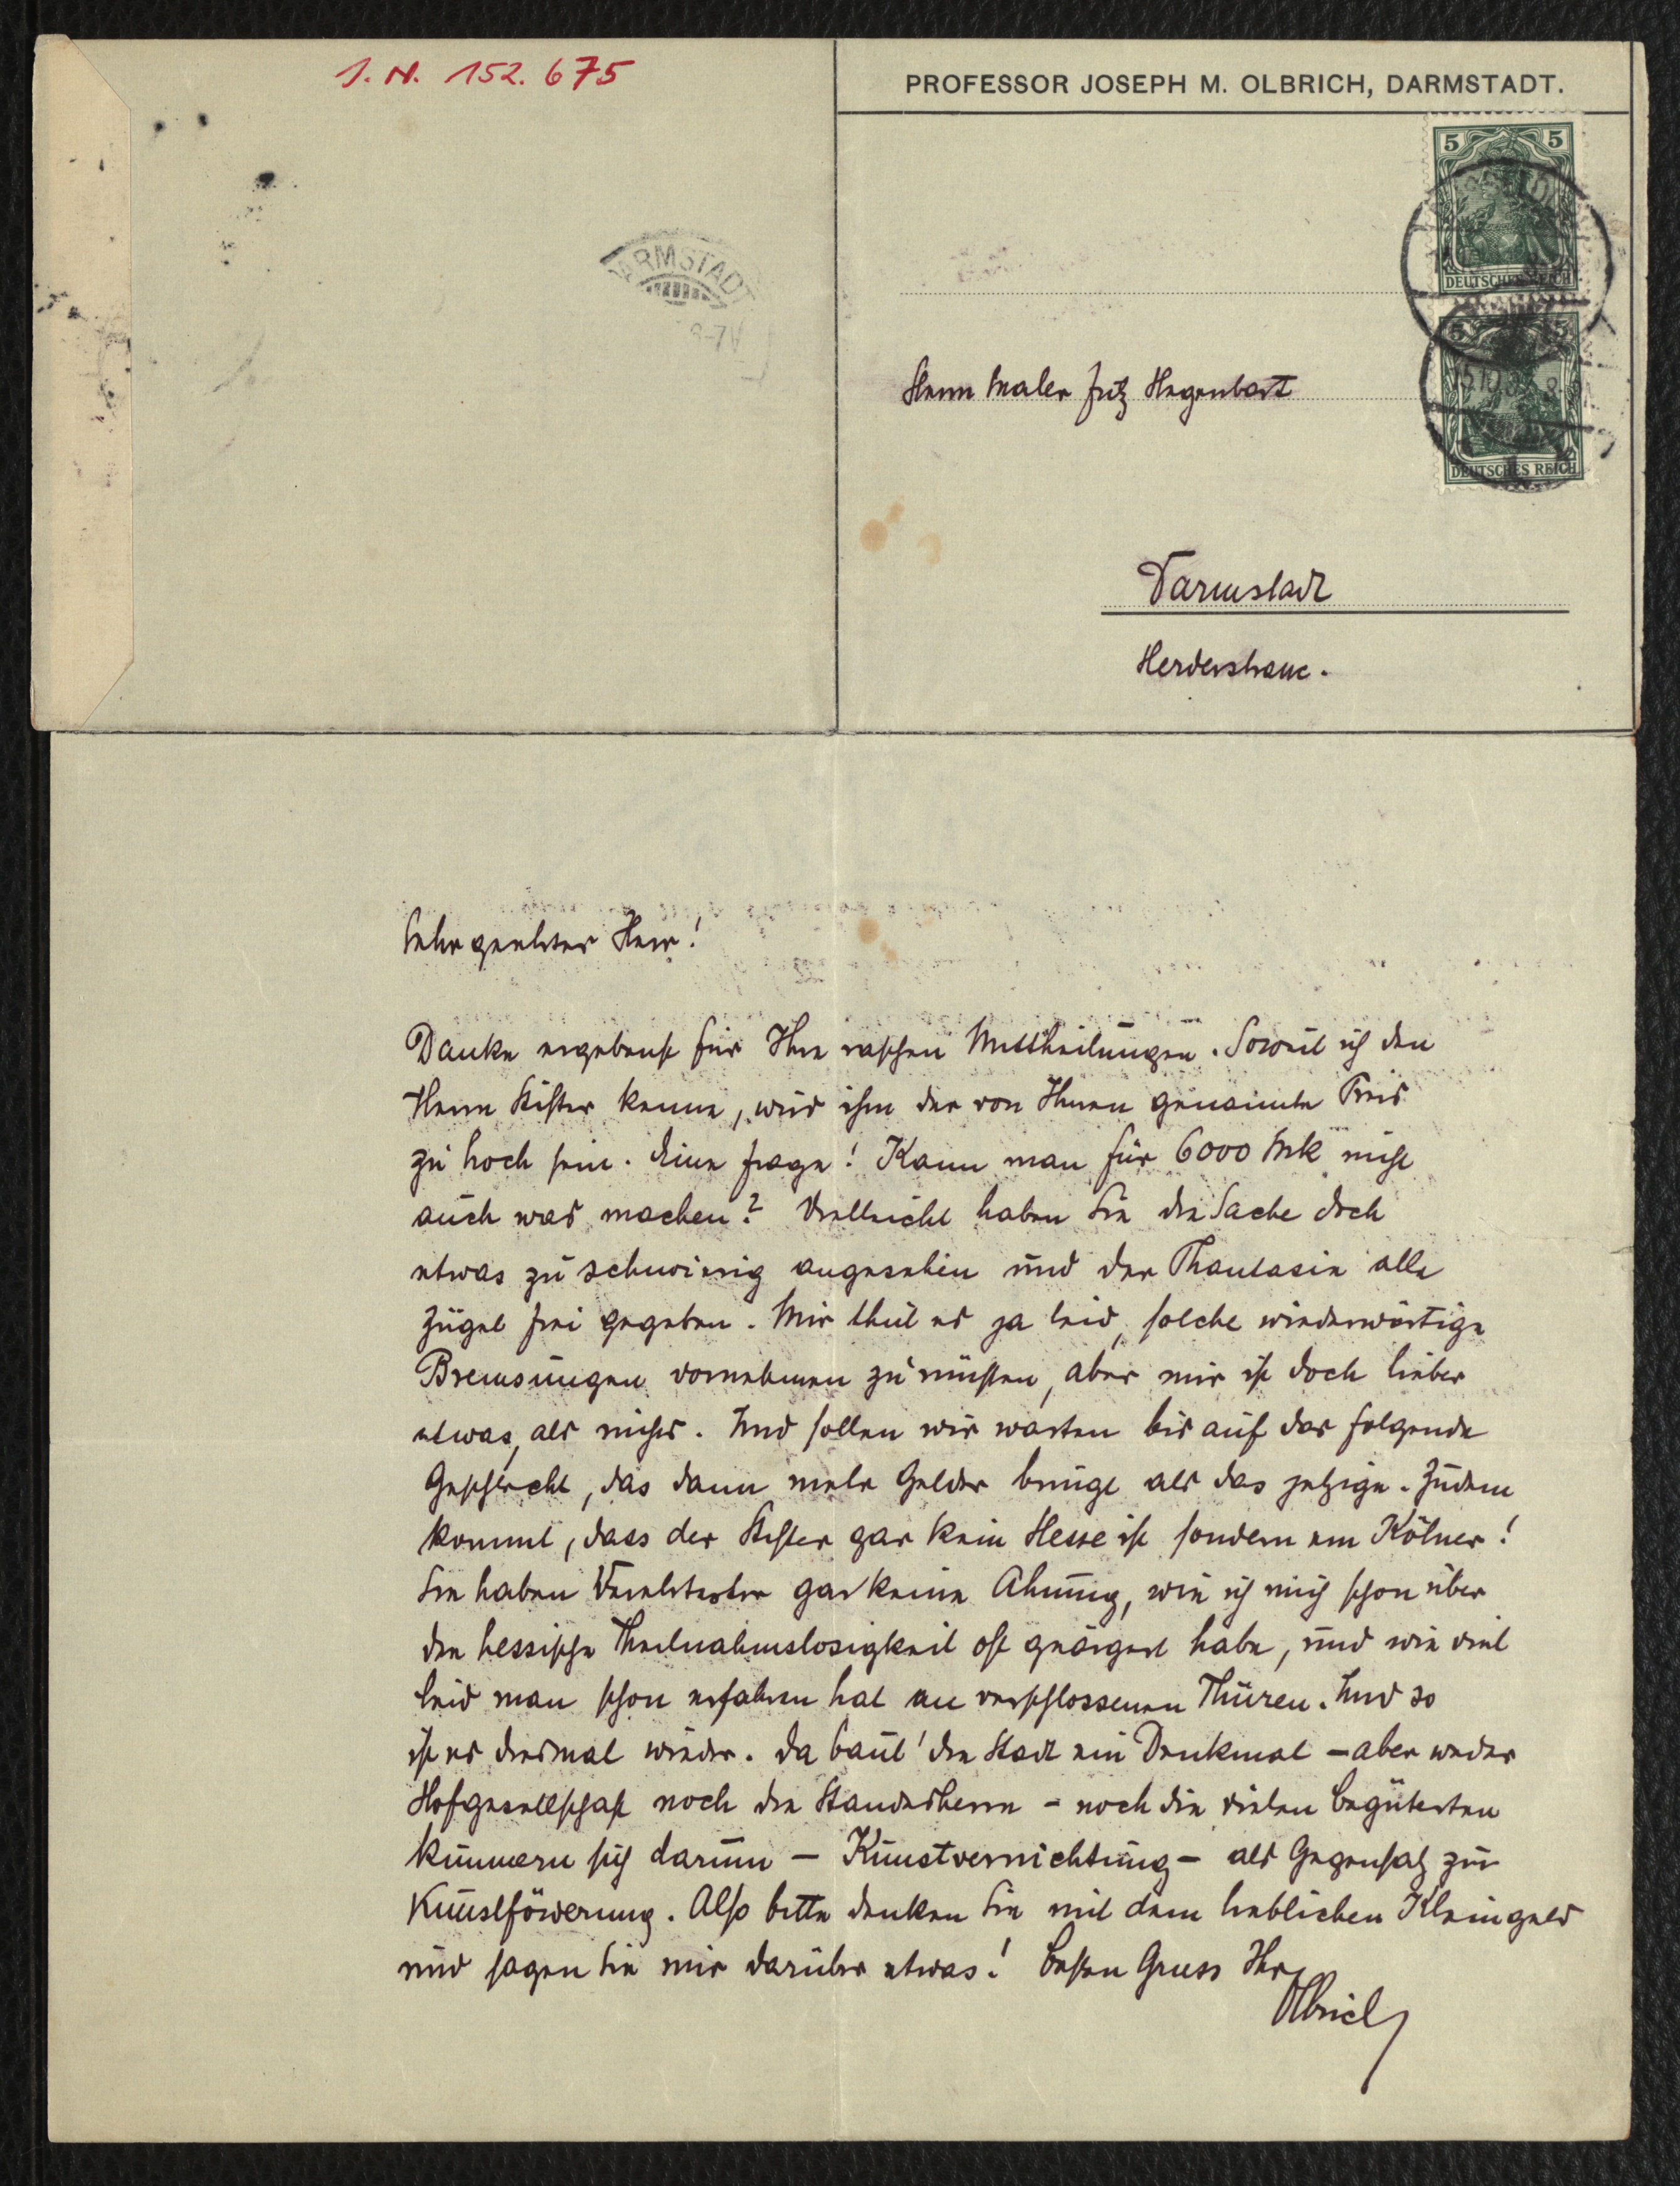 J. N. 152.675
PROFESSOR JOSEPH M. OLBRICH, DARMSTADT.
5 5
DEUTSCHES REICH
5 5
DEUTSCHES REICH
DARMSTADT
Herrn Maler Fritz Hegenbart
Darmstadt
Herderstrasse.
Sehr geehrter Herr!
Danke ergebenst für Ihre raschen Mittheilungen. Soweit ich den
Herrn Stifter kenne, wird ihm der von Ihnen genannte Preis
zu hoch sein. Eine Frage! Kann man für 6000 Mk nicht
auch was machen? Vielleicht haben Sie die Sache doch
etwas zu schwierig angesehen und der Phantasie alle
Zügel frei gegeben. Mir thut es ja leid, solche wiederwärtige
Bremsungen vornehmen zu müssen, aber mir ist doch lieber
etwas, als nichts. Und sollen wir warten bis auf das folgende
Geschlecht, das dann mehr Gelder bringt als das jetzige. Zudem
kommt, dass der Stifter gar kein Hesse ist sondern ein Kölner!
Sie haben Verehrtester gar keine Ahnung, wie ich mich schon über
die hessische Theilnahmslosigkeit oft geärgert habe, und wie viel
Leid man schon erfahren hat an verschlossenen Thüren. Und so
ist es diesmal wieder. Da baut die Stadt ein Denkmal – aber weder
Hofgesellschaft noch die Standesherrn – noch die vielen Begüterten
kümmern sich darum – Kunstvernichtung – als Gegensatz zur
Kunstförderung. Also bitte denken Sie mit dem lieblichen Kleingeld
und sagen Sie mir darüber etwas! Besten Gruss Ihr
Olbrich